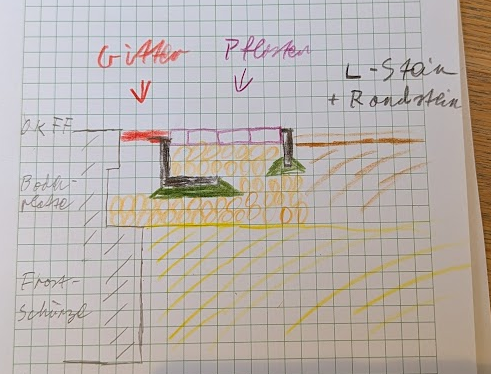 Gitter
Pflaster
L-Stein
+ Randstein
OKFF
Boden-
platte
Frost-
Schürze